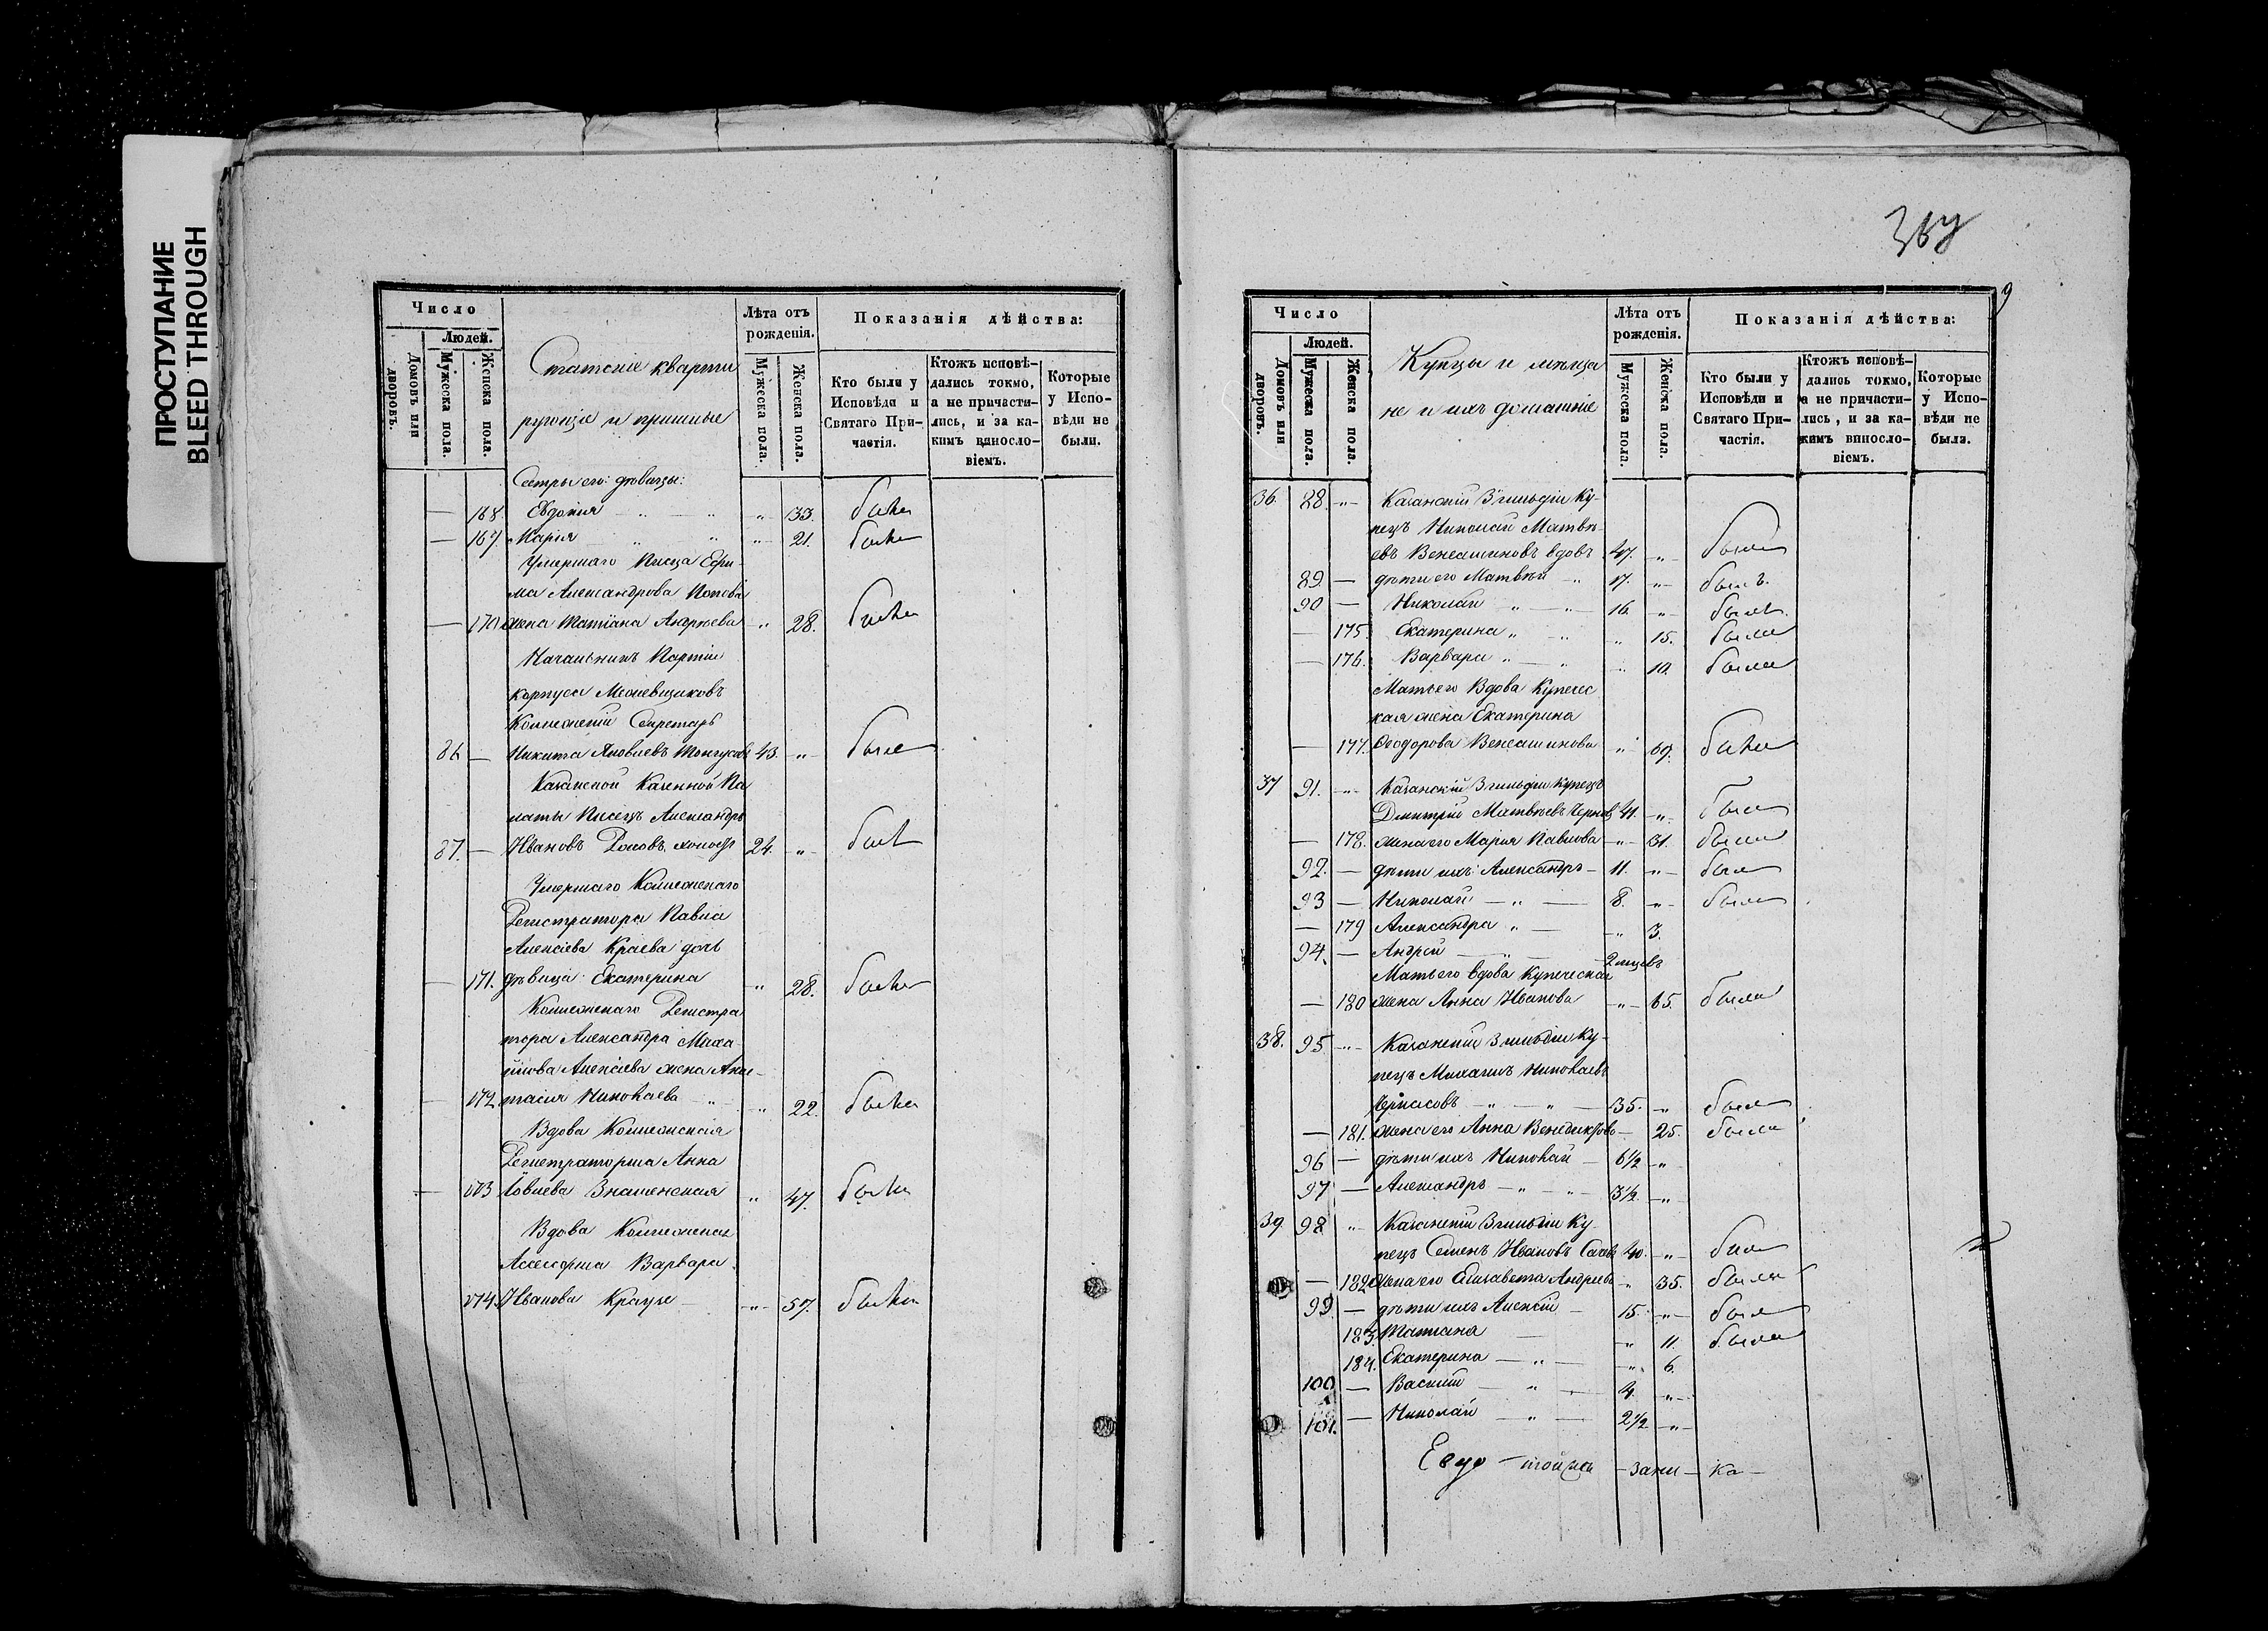 ПРОСТУПАНИЕ
BLEED THROUGH
Число
Людей.
Домовъ или дворовъ.
Мужеска пола.
Женска пола.
Статскіе кварти
рующіе и
Лѣта отъ рожденія.
Мужеска пола.
Женска пола.
Показанія дѣйства:
Кто были у Исповѣди и Святаго Причастія.
Ктожъ исповѣдались токмо, а не причастились, и за какимъ винословіемъ.
Которые у Исповѣди не были.
Сестры его: дѣвицы:
— 168. Евдокия — „ — „ „ 33. была
— 169. Мария „ „ „ 21. была
Умершаго Писца Ефи-
ма Александрова Попова
— 170 жена Татіана Андреева „ 28. была
Начальникъ Партіи
корпуса Межевщиковъ
Коллежскій Секретарь
86 — Никита Яковлевъ 43. „ былъ
Казанской Казенной Па
латы Писецъ Александръ
87. — Ивановъ холостъ 24. „ былъ
Умершаго Коллежскаго
Регистратора Павла
Алексіева Краева дочь
— 171. дѣвица Екатерина „ 28. была
Коллежскаго Регистра
тора Александра Миха
йлова Алексіева жена Анас-
— 172 тасия Николаева „ „ 22. была
Вдова Коллежская
Регистраторша Анна
— 173 Іовлева Знаменская „ 47. была
Вдова Коллежская
Асессорша Варвара
174. Иванова Краузе „ 57. была
9
Число
Людей.
Домовъ или дворовъ.
Мужеска пола.
Женска пола.
Купцы и мѣща
не и ихъ домашніе
Лѣта отъ рожденія.
Мужеска пола.
Женска пола.
Показанія дѣйства:
Кто были у Исповѣди и Святаго Причастія.
Ктожъ исповѣдались токмо, а не причастились, и за какимъ винословіемъ.
Которые у Исповѣди не были.
36. 88. „ Казанскій 3 гильдіи Ку-
пецъ Николай Матвѣ-
евъ Венеаминовъ вдовъ 47. „ былъ
89. — дѣти его Матвѣй „ 17. „ былъ.
90 — Николай „ „ 16 „ былъ.
— 175. Екатерина „ „ „ 15. была
— 176. Варвара „ „ „ 10. была
Мать его Вдова Купечес
кая жена Екатерина
— 177. Ѳеодорова Венеаминова „ 69. была
37 91. „ Казанскій 3 гильдіи Купецъ
Дмитрій Матвѣевъ 41. „ былъ
— 178. жена его Марія Павлова „ 31. была
92. — дѣти ихъ: Александръ 11. „ былъ
93 — Николай „ 8. „ былъ
— 179 Александра „ „ 3.
94. — Андрей „ 2 мцевъ
Мать его вдова Купеческая
— 180 жена Анна Иванова „ 65. была
38. 95 „ Казанскій 3 гильдіи Ку-
пецъ Михаилъ Николаевъ
Черкасовъ „ „ 35. „ былъ
— 181. жена его Анна — 25. была
96 — дѣти ихъ Николай — 6½ „
97 — Александръ „ „ 3½. „
39. 98 „ Казанскій 3 гильдіи Ку-
пецъ Семенъ Ивановъ 40. „ былъ
— 182 жена его Елисавета Андреева „ 35. была
99. — дѣти ихъ Алексій — 15. „ былъ
183. Татиана — „ 11. была
184. Екатерина — „ „ 6.
100 — Василій — „ 4. „
101. — Николай — „ 2½ „